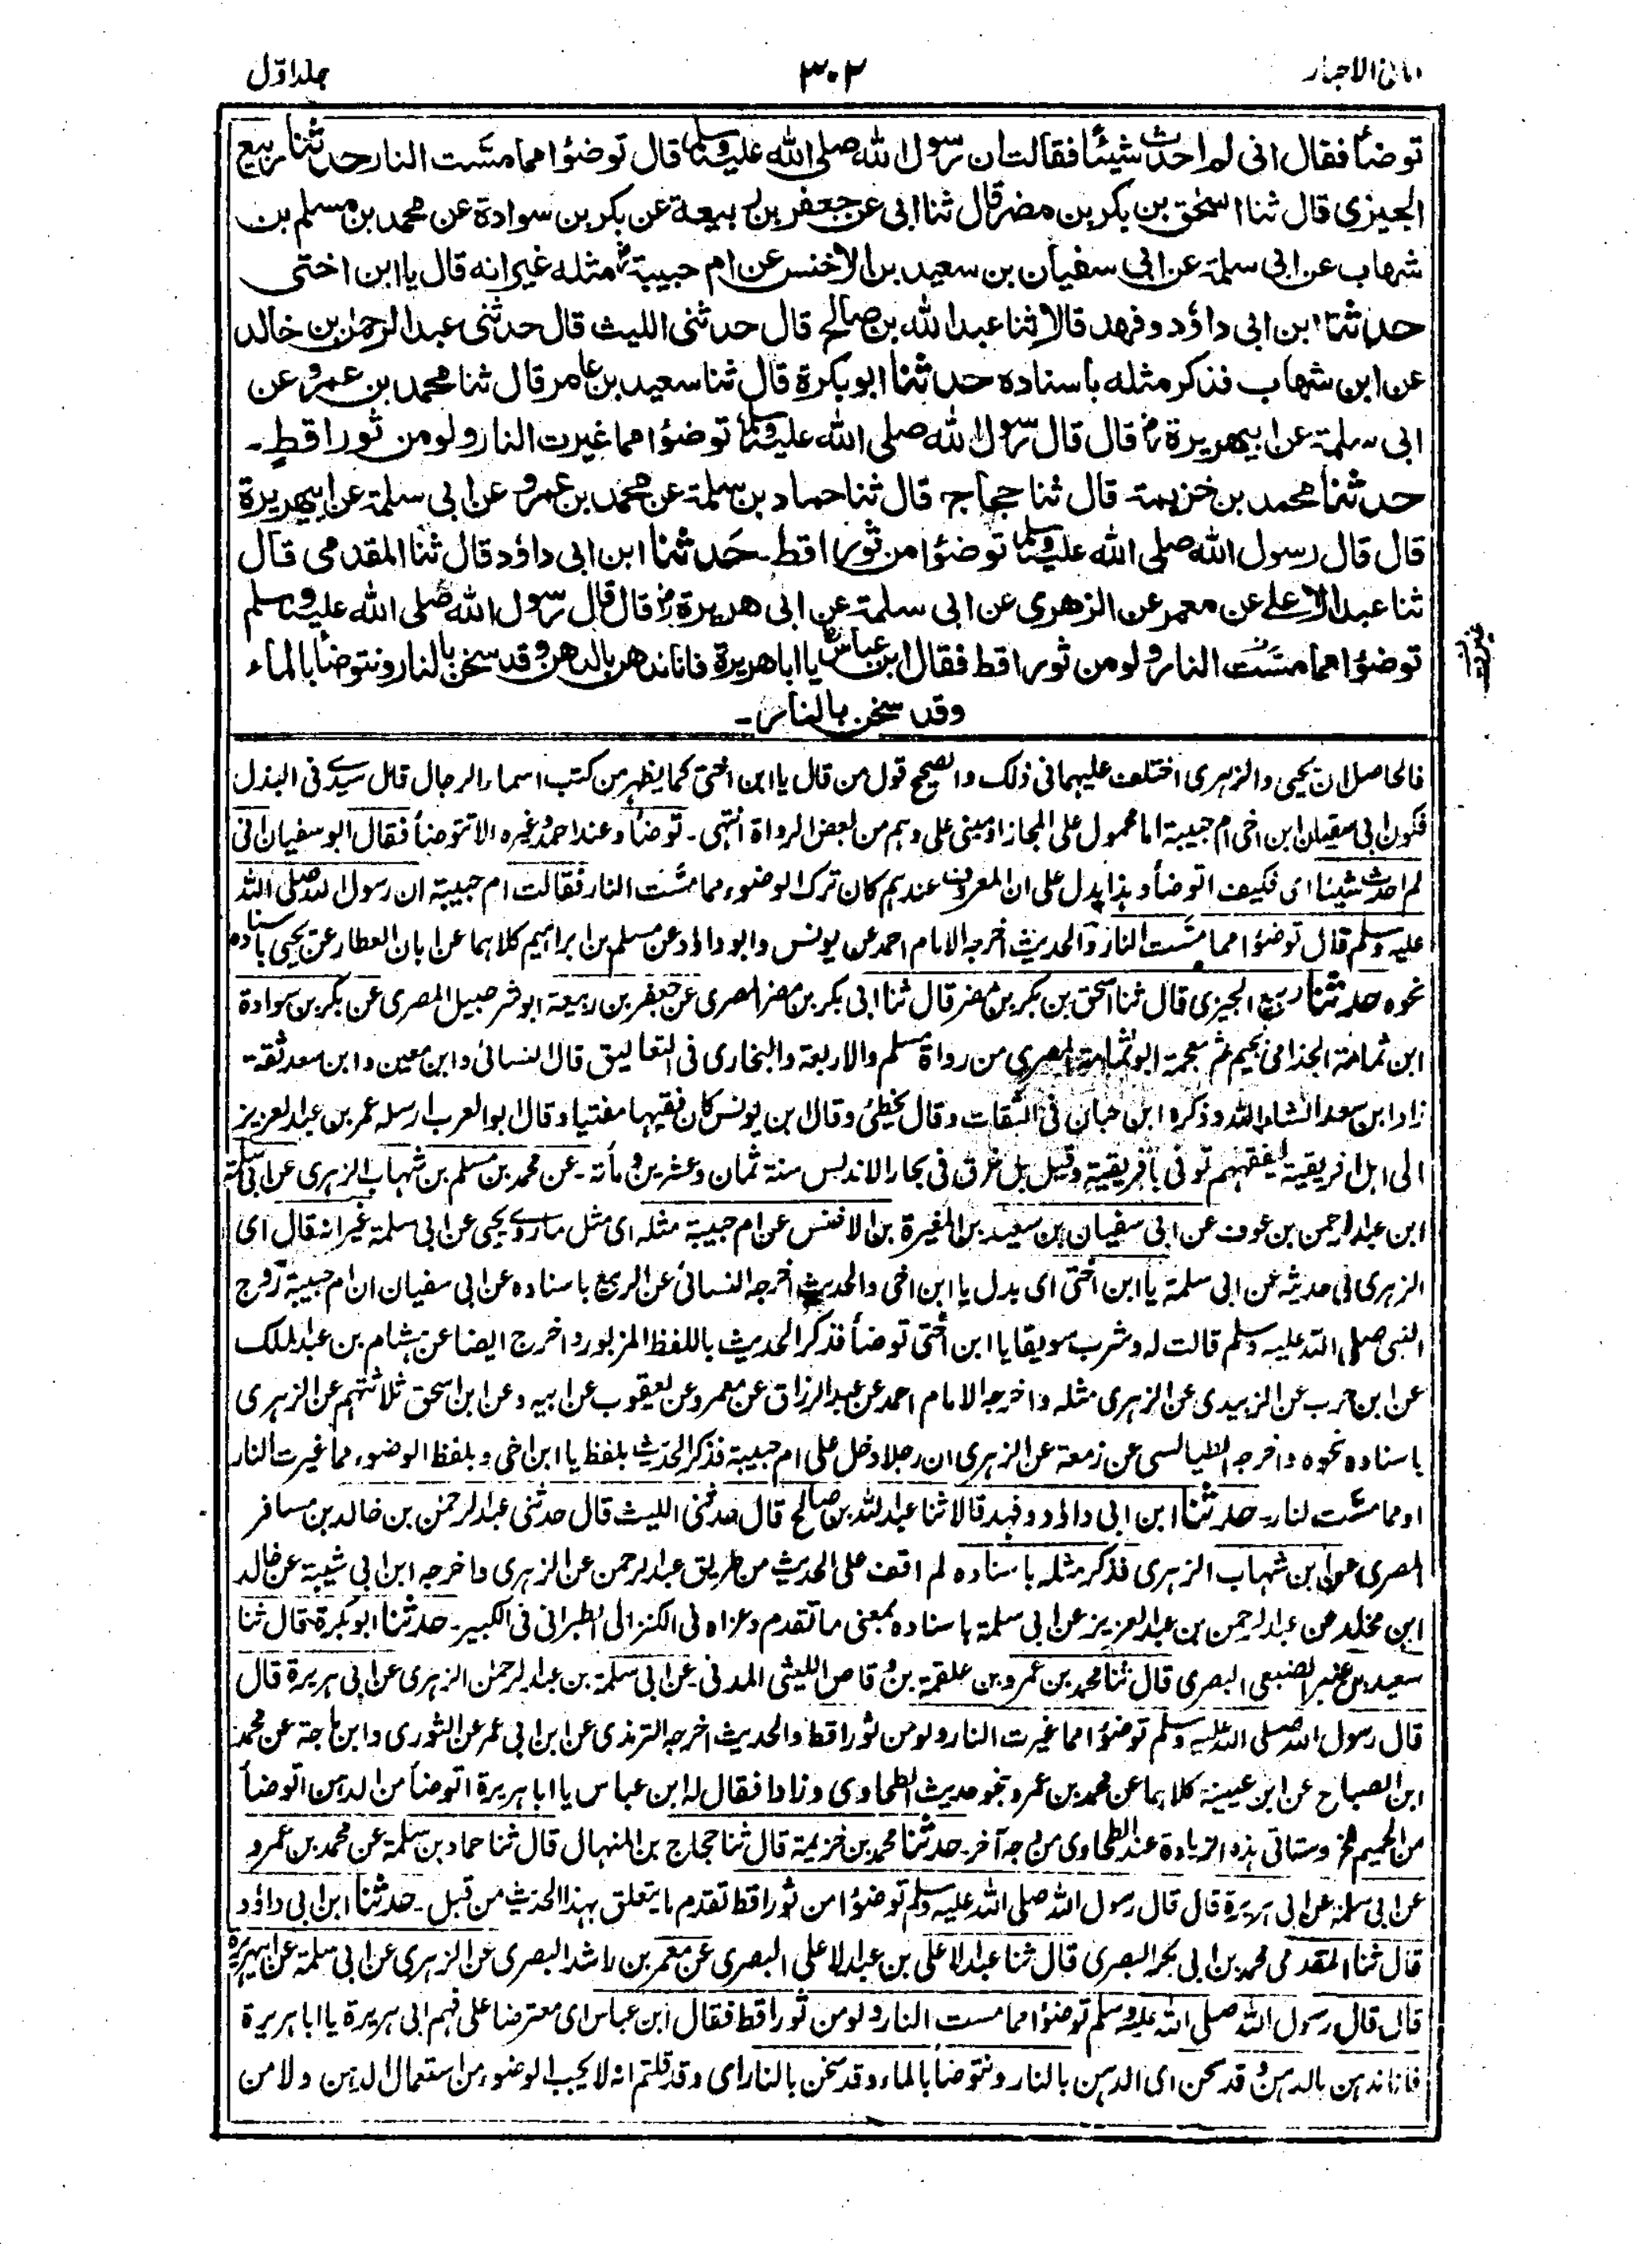 امانی الاحبار
٣٠٢
جلد اوّل
توضأ فقال انی لم احدث شیئًا فقالت ان رسول الله صلی الله علیه وسلم قال توضؤا مما مسّت النار حدثنا ربیع
الجیزی قال ثنا اسحٰق بن بکر بن مضر قال ثنا ابی عن جعفر بن ربیعة عن بکر بن سوادة عن محمد بن مسلم بن
شهاب عن ابی سلمة عن ابی سفیان بن سعید بن الاخنس عن ام حبیبة رض مثله غیر انه قال یا ابن اختی
حدثنا ابن ابی داؤد وفهد قالا ثنا عبد الله بن صالح قال حدثنی اللیث قال حدثنی عبد الرحمٰن بن خالد
عن ابن شهاب فذکر مثله باسناده حدثنا ابو بکرة قال ثنا سعید بن عامر قال ثنا محمد بن عمرو عن
ابی سلمة عن ابی هریرة رض قال قال رسول الله صلی الله علیه وسلم توضؤا مما غیرت النار ولو من ثور اقطٍ۔
حدثنا محمد بن خزیمة قال ثنا حجاج قال ثنا حماد بن سلمة عن محمد بن عمرو عن ابی سلمة عن ابی هریرة
قال قال رسول الله صلی الله علیه وسلم توضؤا من ثور اقط۔ حَدثنا ابن ابی داؤد قال ثنا المقدمی قال
ثنا عبد الاعلے عن معمر عن الزهری عن ابی سلمة عن ابی هریرة رض قال قال رسول الله صلی الله علیه وسلم
توضؤا مما مسّت النار ولو من ثور اقط فقال ابن عباس رض یا ابا هریرة فانا ندهن بالدهن وقد سخن بالنار ونتوضأ بالماء
وقد سخن بالنار۔
فالحاصل ان یحیی والزهری اختلف علیهما فی ذلک والصحیح قول من قال یا ابن اختی کما یظهر من کتب اسماء الرجال قال سیدی فی البذل
فکون ابی سفیان ابن اخی ام حبیبة اما محمول علی المجاز او مبنی علی وهم من بعض الرواة انتهی۔ توضأ وعند احمد وغیره الا تتوضأ فقال ابو سفیان انی
لم احدث شیئا ای فکیف اتوضأ وهذا یدل علی ان المعروف عندهم کان ترک الوضوء مما مسّت النار فقالت ام حبیبة ان رسول الله صلی الله
علیه وسلم قال توضؤا مما مسّت النار والحدیث اخرجه الامام احمد عن یونس وابو داؤد عن مسلم بن ابراهیم کلاهما عن ابان العطار عن یحیی باسناده
نحوه حدثنا ربیع الجیزی قال ثنا اسحق بن بکر بن مضر قال ثنا ابی بکر بن مضر المصری عن جعفر بن ربیعة ابو شرحبیل المصری عن بکر بن سوادة
ابن ثمامة الجذامی بجیم ثم معجمة ابو ثمامة المصری من رواة مسلم والاربعة والبخاری فی التعالیق قال النسائی وابن معین وابن سعد ثقة۔
زاد ابن سعد انشاء الله وذکره ابن حبان فی الثقات وقال یخطئ وقال ابن یونس کان فقیها مفتیا وقال ابو العرب ارسله عمر بن عبد العزیز
الی اهل افریقیة لیفقههم توفی بافریقیة وقیل بل غرق فی بحار الاندلس سنة ثمان وعشرین ومأئة۔ عن محمد بن مسلم بن شهاب الزهری عن ابی سلمة
ابن عبد الرحمن بن عوف عن ابی سفیان بن سعید بن المغیرة بن الاخنس عن ام حبیبة مثله ای مثل ما روی یحیی عن ابی سلمة غیر انه قال ای
الزهری فی حدیثه عن ابی سلمة یا ابن اختی ای بدل یا ابن اخی والحدیث اخرجه النسائی عن الربیع باسناده عن ابی سفیان ان ام حبیبة زوج
النبی صلی الله علیه وسلم قالت له وشرب سویقا یا ابن اختی توضأ فذکر الحدیث باللفظ المزبور واخرج ایضا عن هشام بن عبد الملک
عن ابن حرب عن الزبیدی عن الزهری مثله واخرجه الامام احمد عن عبد الرزاق عن معمر وعن یعقوب عن ابیه وعن ابن اسحق ثلاثتهم عن الزهری
باسناده نحوه واخرجه الطیالسی عن زمعة عن الزهری ان رجلا دخل علی ام حبیبة فذکر الحدیث بلفظ یا ابن اخی وبلفظ الوضوء مما غیرت النار
او مما مسّت النار۔ حدثنا ابن ابی داؤد وفهد قالا ثنا عبد الله بن صالح قال حدثنی اللیث قال حدثنی عبد الرحمن بن خالد بن مسافر
المصری عن ابن شهاب الزهری فذکر مثله باسناده لم اقف علی الحدیث من طریق عبد الرحمن عن الزهری واخرجه ابن ابی شیبة عن خالد
ابن مخلد عن عبد الرحمن بن عبد العزیز عن ابی سلمة باسناده بمعنی ما تقدم وعزاه فی الکنز الی الطبرانی فی الکبیر۔ حدثنا ابو بکرة قال ثنا
سعید بن عامر الضبعی البصری قال ثنا محمد بن عمرو بن علقمة بن وقاص اللیثی المدنی عن ابی سلمة بن عبد الرحمن الزهری عن ابی هریرة قال
قال رسول الله صلی الله علیه وسلم توضؤا مما غیرت النار ولو من ثور اقط والحدیث اخرجه الترمذی عن ابن ابی عمر عن الثوری وابن ماجة عن محمد
ابن الصباح عن ابن عیینة کلاهما عن محمد بن عمرو بنحو حدیث الطحاوی وزادا فقال له ابن عباس یا ابا هریرة اتوضأ من الدهن اتوضأ
من الحمیم الخ وستاتی هذه الزیادة عند الطحاوی من وجه آخر۔ حدثنا محمد بن خزیمة قال ثنا حجاج بن المنهال قال ثنا حماد بن سلمة عن محمد بن عمرو
عن ابی سلمة عن ابی هریرة قال قال رسول الله صلی الله علیه وسلم توضؤا من ثور اقط تقدم ما یتعلق بهذا الحدیث من قبل۔ حدثنا ابن ابی داؤد
قال ثنا المقدمی محمد بن ابی بکر البصری قال ثنا عبد الاعلی بن عبد الاعلی البصری عن معمر بن راشد البصری عن الزهری عن ابی سلمة عن ابی هریرة
قال قال رسول الله صلی الله علیه وسلم توضؤا مما مست النار ولو من ثور اقط فقال ابن عباس ای معترضا علی فهم ابی هریرة یا ابا هریرة
فانا ندهن بالدهن وقد سخن ای الدهن بالنار ونتوضأ بالماء وقد سخن بالنار ای وقد قلتم انه لا یجب الوضوء من استعمال الدهن ولا من